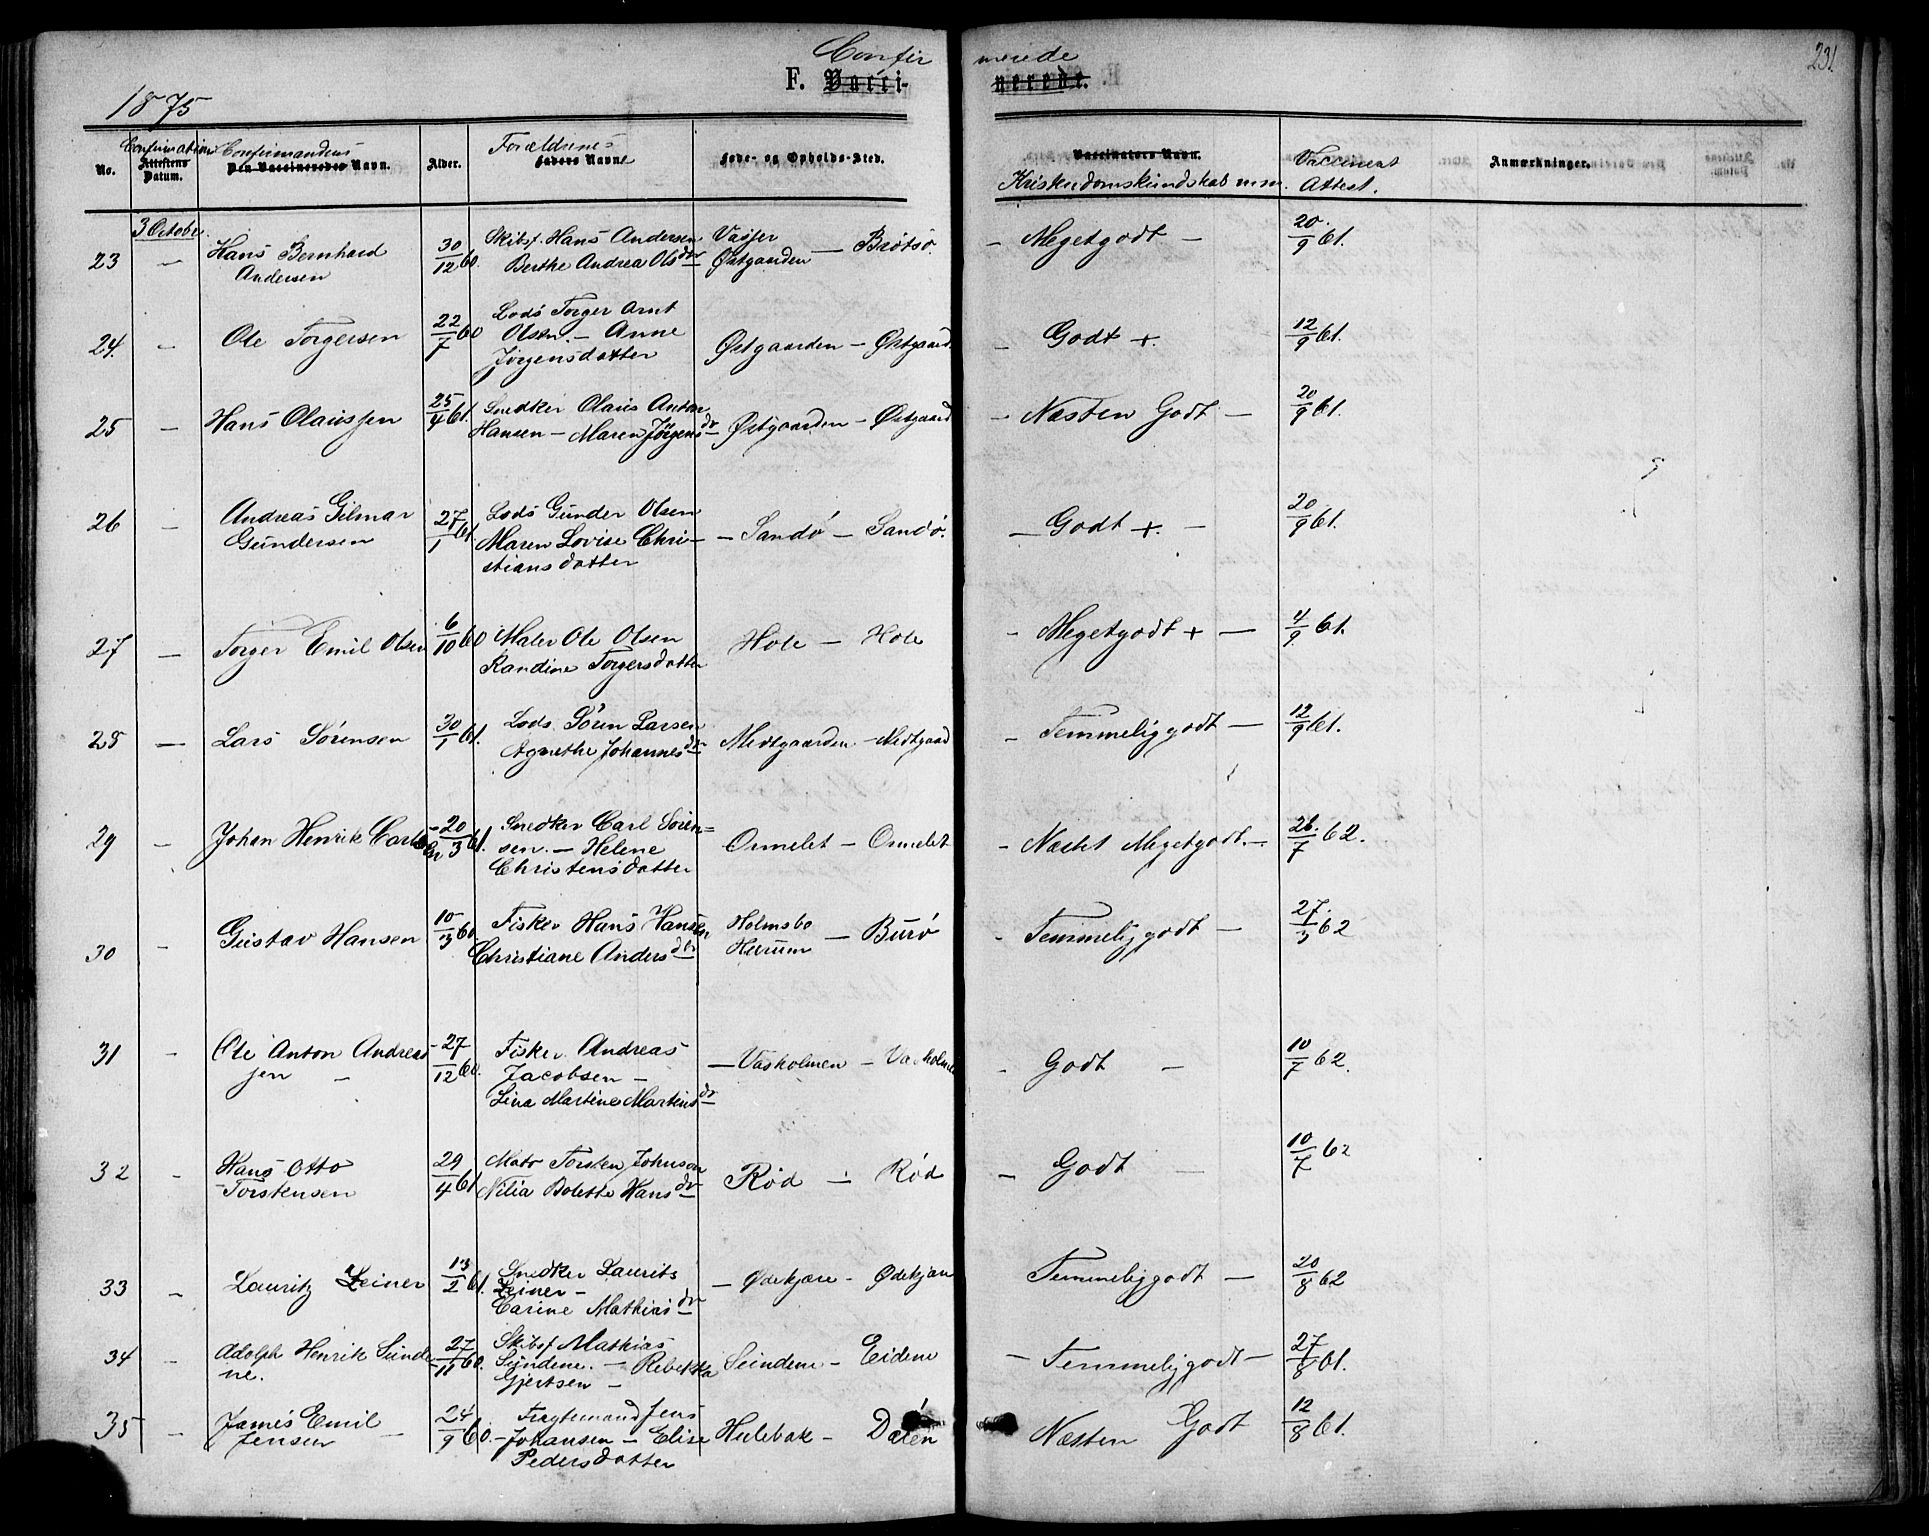 Confirmerede
231
F. Vaccinerede.
1875
No. Confirmations Attestens Datum. Confirmandens Den Vaccineredes Navn. Alder. Forældrenes Faders Navne Føde- og Opholds-Sted. Vaccinators Navn. Kristendomskundskab m.m. Vaccineret Attest. Anmærkninger.
3 October.
23 — Hans Bernhard Andersen 30/12 60. Skibsf. Hans Andersen Berthe Andrea Olsdr Vasser Østgaarden — Brøtsø. — Megetgodt — 20/9 61.
24. — Ole Torgersen 22/7 60 Lods Torger Arnt Olsen. — Anne Jørgensdatter Østgaarden — Østgaard. — Godt +. 12/9 61.
25 — Hans Olaussen 25/4 61. Snedker Olaus Anton Hansen — Maren Jørgensdr Østgaarden — Østgaard — Næsten Godt — 20/9 61.
26 — Andreas Gilmar Gundersen 27/1 61 Lods Gunder Olsen Maren Lovise Christiansdatter — Sandø — Sandø. — Godt +. — 20/9 61.
27 — Torger Emil Olsen 6/10 60 Maler Ole Olsen Randine Torgersdatter Hole — Hole — Megetgodt + — 4/9 61.
28 — Lars Sørensen 30/1 61. Lods Søren Larsen Agnethe Johannesdr Medtgaarden — Medtgaard — Temmeliggodt — 12/9 61.
29 — Johan Henrik Carlsen 20/3 61. Snedker Carl Sørensen. — Helene Christensdatter Ormelet — Ormelet — Næsten Megetgodt. — 26/7 62.
30 — Gustav Hansen 10/3 60 Fisker Hans Hansen Christiane Andersdr Holmsbo Hurum — Burø — Temmeliggodt — 27/3 62
31 — Ole Anton Andreassen — 27/12 60. Fisker Andreas Jacobsen — Lina Martine Martinsdr — Vasholmen — Vasholmen — Godt — 10/7 62.
32 — Hans Otto Torstensen 29/4 61 Matr Torsten Johnson Nilia Bolette Hansdr Rød — Rød — Godt — 10/7 62
33 — Lauritz Leiner 13/2 61. Snedker Laurits Leiner — Carine Mathiasdr — Ødekjære — Ødekjær Temmeliggodt — 20/8 62
34 — Adolph Henrik Sundene. 27/11 60. Skibsf Mathias Sundene. — Rebekka Gjertsen — Sundene — Eidene — Temmeliggodt — 27/8 61.
35 — James Emil Jensen — 24/9 60. Fragtemand Jens Johansen — Elise Pedersdatter Hulebak — Dalen — Næsten Godt 12/8 61.